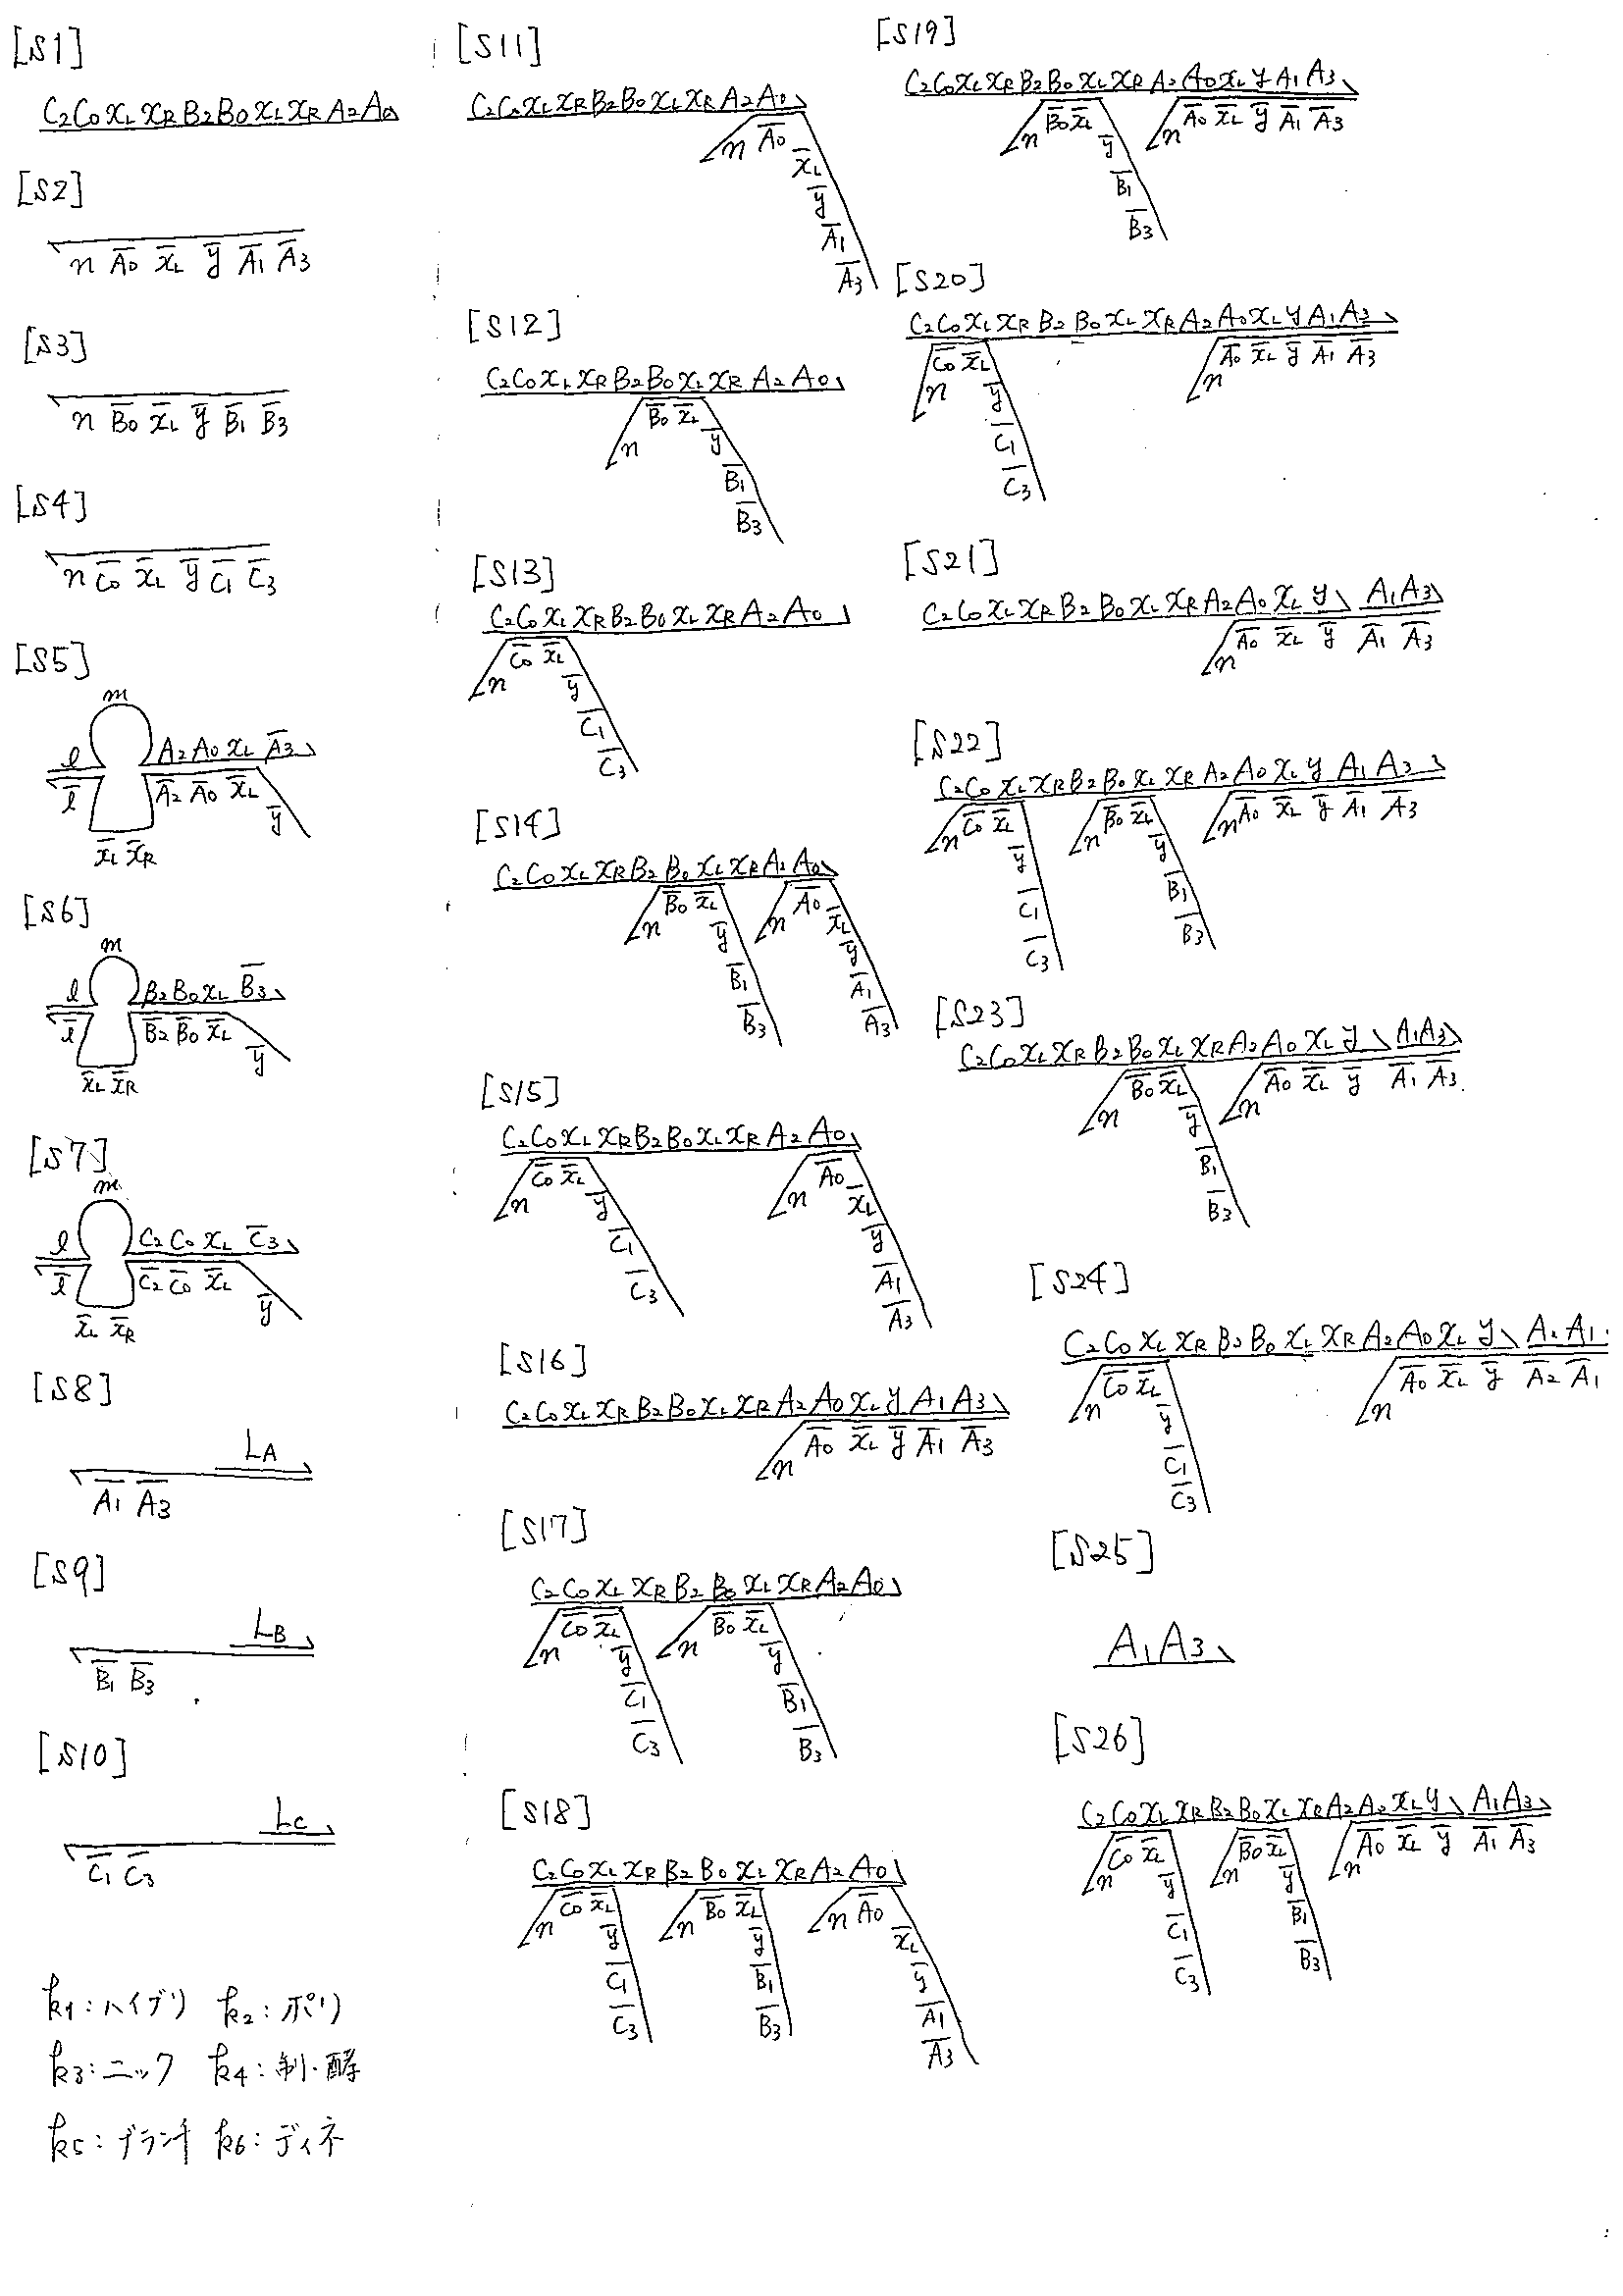 [S1]
C₂C₀x_L x_R B₂B₀x_L x_R A₂A₀
[S2]
n A̅₀ x̅_L y̅ A̅₁ A̅₃
[S3]
n B̅₀ x̅_L y̅ B̅₁ B̅₃
[S4]
n C̅₀ x̅_L y̅ C̅₁ C̅₃
[S5]
m
l A₂A₀x_L A̅₃
l̅ A̅₂ A̅₀ x̅_L
y̅
x̅_L x̅_R
[S6]
m
l B₂B₀x_L B̅₃
l̅ B̅₂ B̅₀ x̅_L
y̅
x̅_L x̅_R
[S7]
m
l C₂C₀x_L C̅₃
l̅ C̅₂ C̅₀ x̅_L
y̅
x̅_L x̅_R
[S8]
L_A
A̅₁ A̅₃
[S9]
L_B
B̅₁ B̅₃
[S10]
L_C
C̅₁ C̅₃
k₁:ハイブリ k₂:ポリ
k₃:ニック k₄:制・酵
k₅:ブランチ k₆:ディネ
[S11]
C₂C₀x_L x_R B₂B₀x_L x_R A₂A₀
n A̅₀
x̅_L
y̅
A̅₁
A̅₃
[S12]
C₂C₀x_L x_R B₂B₀x_L x_R A₂A₀
B̅₀ x̅_L
n y̅
B̅₁
B̅₃
[S13]
C₂C₀x_L x_R B₂B₀x_L x_R A₂A₀
C̅₀ x̅_L
n y̅
C̅₁
C̅₃
[S14]
C₂C₀x_L x_R B₂B₀x_L x_R A₂A₀
B̅₀ x̅_L A̅₀
n y̅ n x̅_L
B̅₁ y̅
B̅₃ A̅₁
A̅₃
[S15]
C₂C₀x_L x_R B₂B₀x_L x_R A₂A₀
C̅₀ x̅_L A̅₀
n y̅ n x̅_L
C̅₁ y̅
C̅₃ A̅₁
A̅₃
[S16]
C₂C₀x_L x_R B₂B₀x_L x_R A₂A₀x_L y A₁A₃
n A̅₀ x̅_L y̅ A̅₁ A̅₃
[S17]
C₂C₀x_L x_R B₂B₀x_L x_R A₂A₀
C̅₀ x̅_L B̅₀ x̅_L
n y̅ n y̅
C̅₁ B̅₁
C̅₃ B̅₃
[S18]
C₂C₀x_L x_R B₂B₀x_L x_R A₂A₀
C̅₀ x̅_L B̅₀ x̅_L n A̅₀
n y̅ n y̅ x̅_L
C̅₁ B̅₁ y̅
C̅₃ B̅₃ A̅₁
A̅₃
[S19]
C₂C₀x_L x_R B₂B₀x_L x_R A₂A₀x_L y A₁A₃
n B̅₀ x̅_L n A̅₀ x̅_L y̅ A̅₁ A̅₃
y̅
B̅₁
B̅₃
[S20]
C₂C₀x_L x_R B₂B₀x_L x_R A₂A₀x_L y A₁A₃
C̅₀ x̅_L A̅₀ x̅_L y̅ A̅₁ A̅₃
n y̅ n
C̅₁
C̅₃
[S21]
C₂C₀x_L x_R B₂B₀x_L x_R A₂A₀x_L y A₁A₃
n A̅₀ x̅_L y̅ A̅₁ A̅₃
[S22]
C₂C₀x_L x_R B₂B₀x_L x_R A₂A₀x_L y A₁A₃
n C̅₀ x̅_L n B̅₀ x̅_L n A̅₀ x̅_L y̅ A̅₁ A̅₃
y̅ y̅
C̅₁ B̅₁
C̅₃ B̅₃
[S23]
C₂C₀x_L x_R B₂B₀x_L x_R A₂A₀x_L y A₁A₃
B̅₀ x̅_L A̅₀ x̅_L y̅ A̅₁ A̅₃
n y̅ n
B̅₁
B̅₃
[S24]
C₂C₀x_L x_R B₂B₀x_L x_R A₂A₀x_L y A₂A₁
C̅₀ x̅_L A̅₀ x̅_L y̅ A̅₂ A̅₁
n y̅ n
C̅₁
C̅₃
[S25]
A₁A₃
[S26]
C₂C₀x_L x_R B₂B₀x_L x_R A₂A₂x_L y A₁A₃
C̅₀ x̅_L B̅₀ x̅_L A̅₀ x̅_L y̅ A̅₁ A̅₃
n y̅ n y̅ n
C̅₁ B̅₁
C̅₃ B̅₃